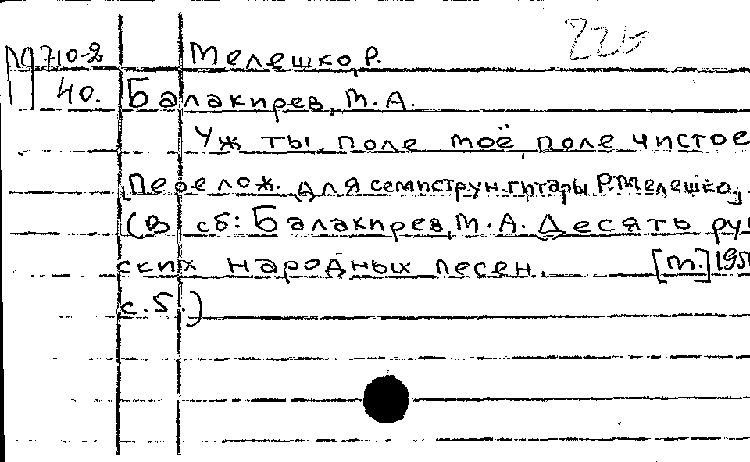 Мелешко, Р. 225
М 710-2
40. Балакирев, М. А.
Уж ты, поле моё, поле чистое
[Перелож. для семиструн. гитары Р. Мелешко].
(В сб: Балакирев, М. А. Десять рус
ских народных песен. [М.] 195
с. 5.)